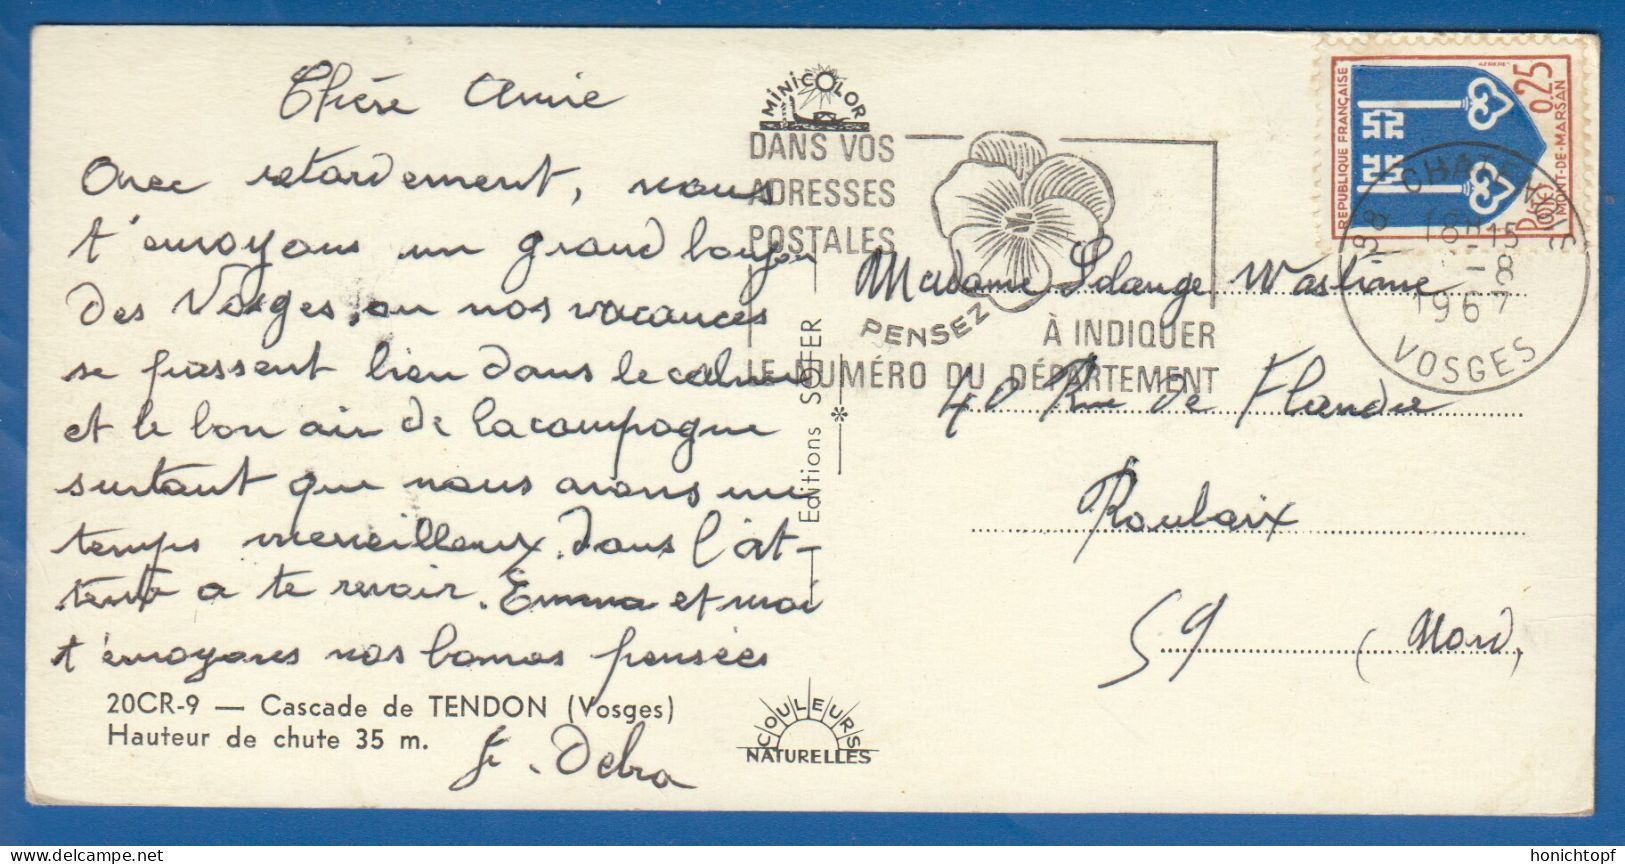 Chère Amie
Avec retardement, nous
t'envoyons un grand bonjour
des Vosges, ou nos vacances
se passent bien dans le calme
et le bon air de la campagne
surtout que nous avons un
temps merveilleux. dans l'at-
tente a te revoir. Emma et moi
t'envoyons nos bonnes pensées
20CR-9 — Cascade de TENDON (Vosges)
Hauteur de chute 35 m.
Debra
MINICOLOR
DANS VOS
ADRESSES
POSTALES
PENSEZ
À INDIQUER
LE NUMÉRO DU DÉPARTEMENT
Editions SOFER
COULEURS
NATURELLES
RÉPUBLIQUE FRANÇAISE
0,25
MONT-DE-MARSAN
POSTES
88
18H15
-8
1967
VOSGES
Madame Solange Wastiane
40 Rue de Flandre
Roubaix
59 (Nord)
honichtopf